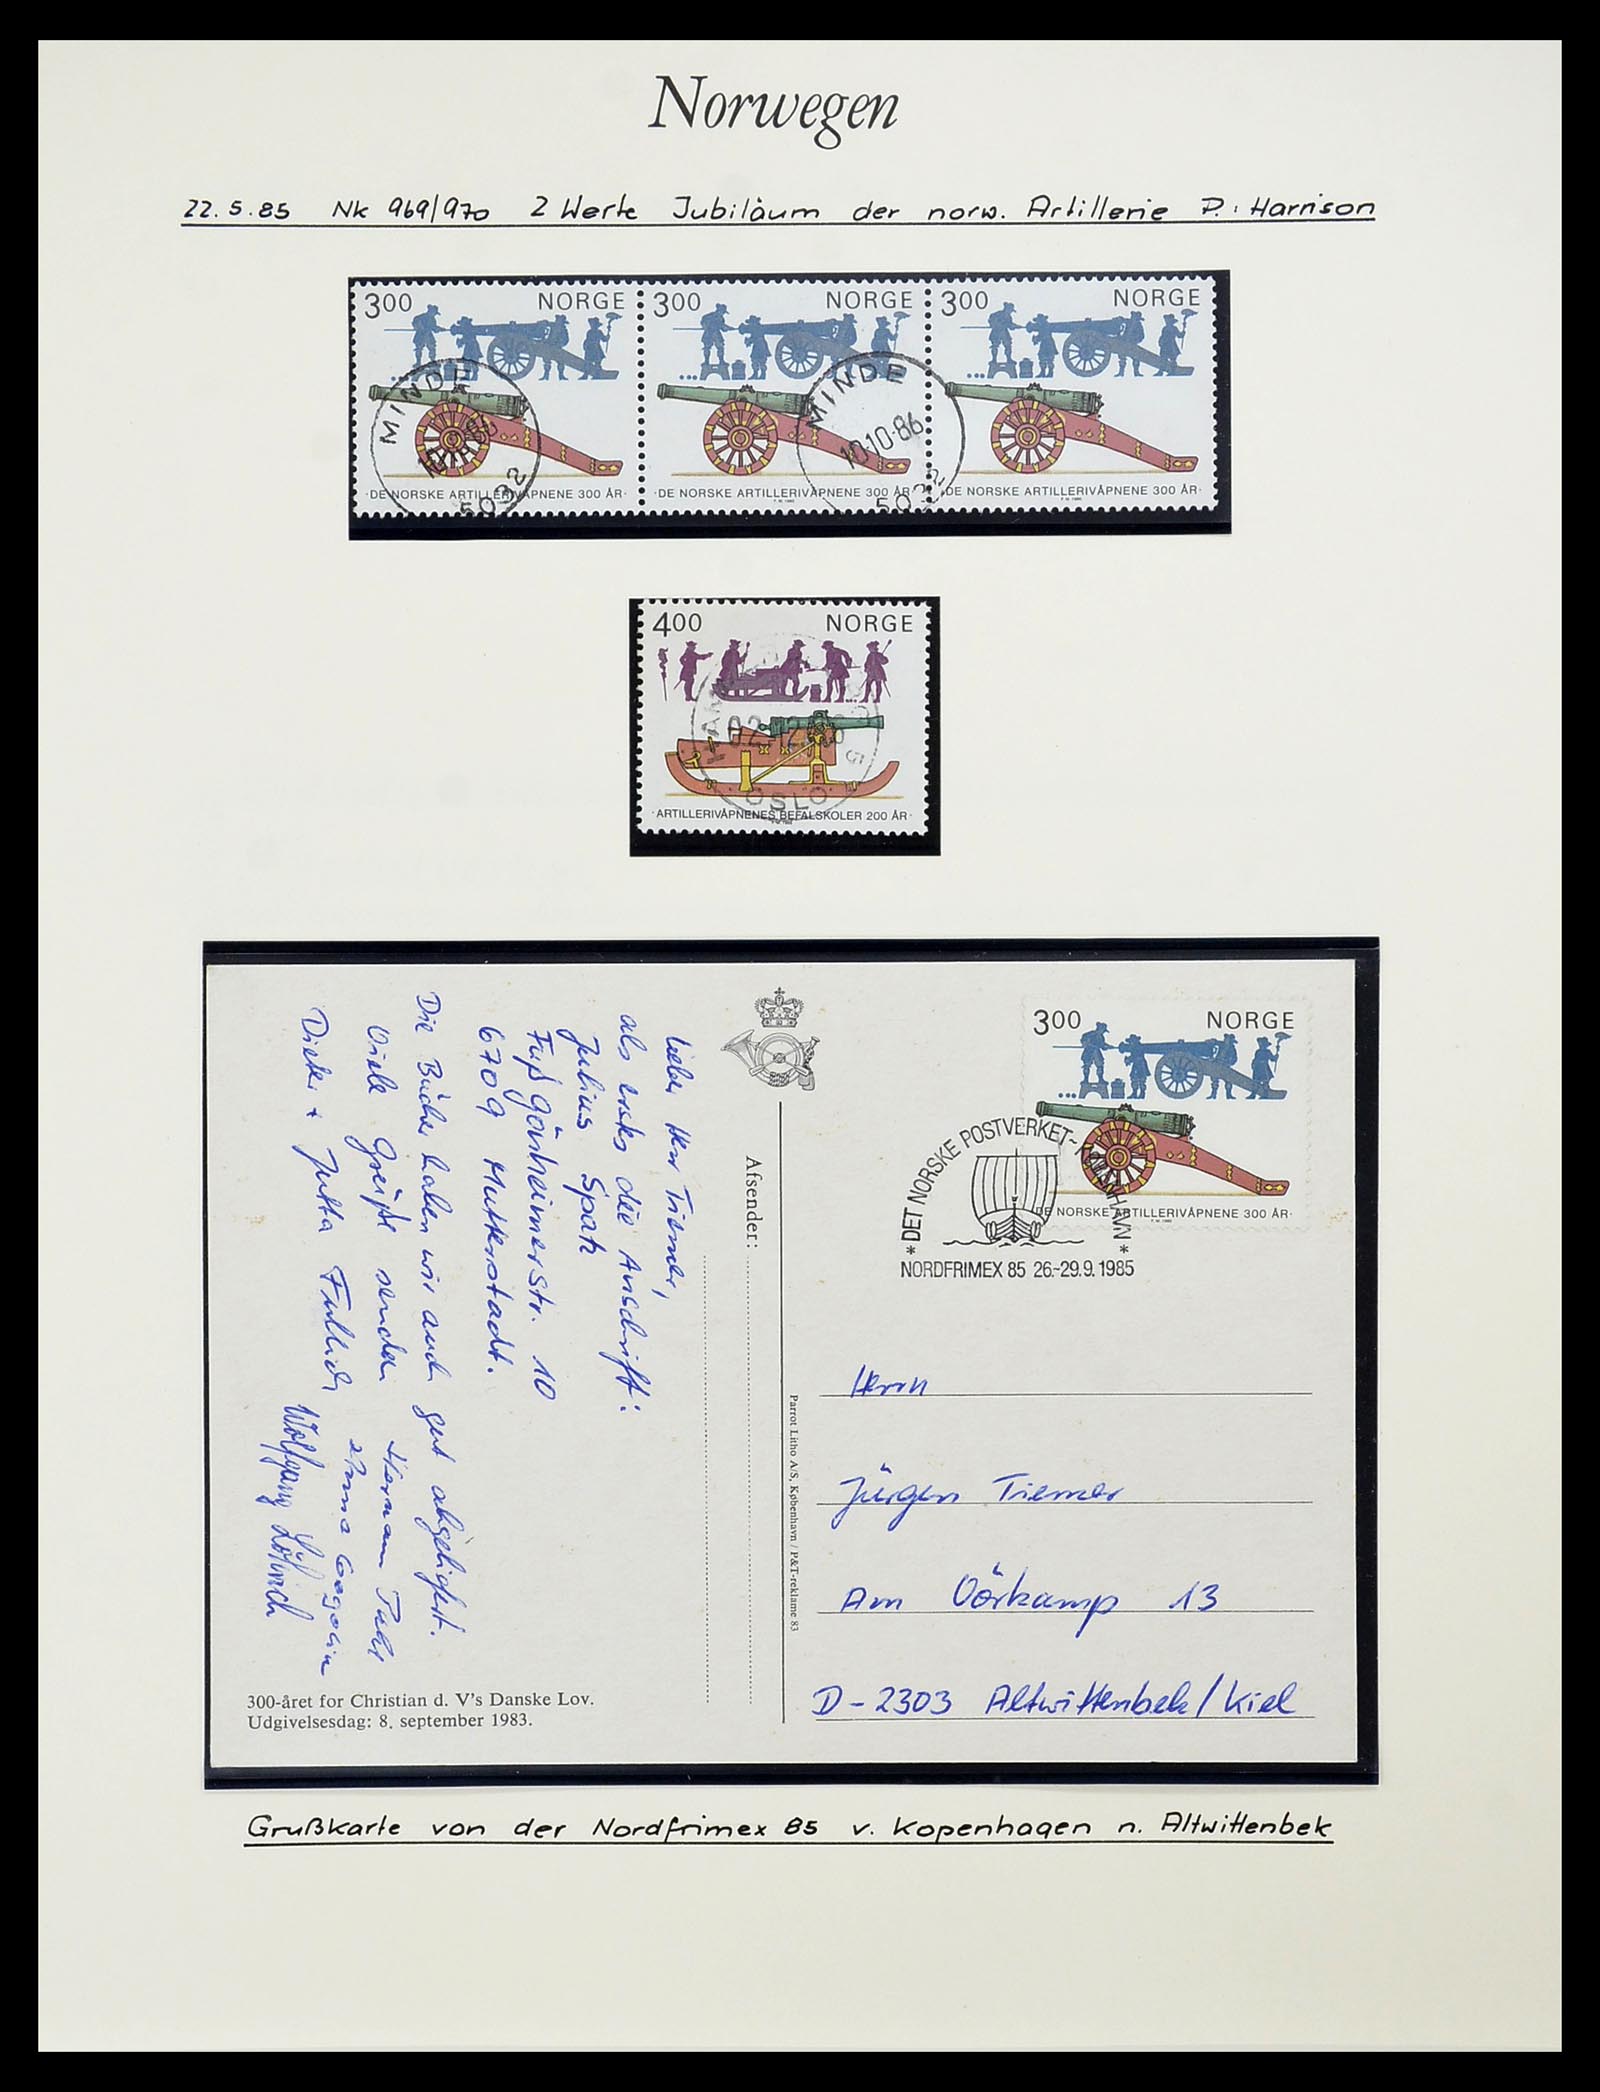 Norwegen
22.5.85 Nk 969/970 2 Werte Jubiläum der norw. Artillerie D.: Harrison
3.00 NORGE
MINDE
5032
·DE NORSKE ARTILLERIVÅPNENE 300 ÅR·
3.00 NORGE
MINDE
10.10.86
5032
·DE NORSKE ARTILLERIVÅPNENE 300 ÅR·
3.00 NORGE
·DE NORSKE ARTILLERIVÅPNENE 300 ÅR·
4.00 NORGE
OSLO
·ARTILLERIVÅPNENES BEFALSKOLER 200 ÅR·
Lieber Herr Tiemer,
als erstes die Anschrift:
Julius Spatz
Fußgönheimerstr. 10
6709 Mutterstadt.
Die Bücher haben wir auch gut abgeliefert.
Viele Grüße senden
Dieter + Jutta
Wolfgang
300-året for Christian d. V's Danske Lov.
Udgivelsesdag: 8. september 1983.
Afsender:
Parrot Litho A/S, København / P&T-reklame 83
3.00 NORGE
DE NORSKE ARTILLERIVÅPNENE 300 ÅR·
* DET NORSKE POSTVERKET - KØBENHAVN *
NORDFRIMEX 85 26.-29.9.1985
Herrn
Jürgen Tiemer
Am Vörkamp 13
D-2303 Altwittenbek/Kiel
Grußkarte von der Nordfrimex 85 v. Kopenhagen n. Altwittenbek